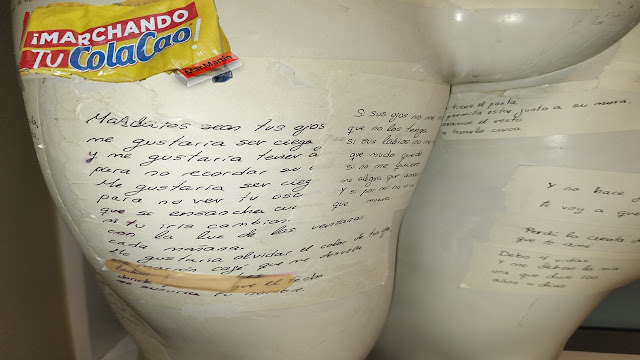 ¡MARCHANDO
TU ColaCao!
MaxMartin
Malditos sean tus ojos
me gustaría ser ciega
y me gustaría tener a
para no recordar su
Me gustaría ser cieg
para no ver tu osc
que se ensancha cu
ni tu iris cambiar
con la luz de las ventanas
cada mañana.
Me gustaría olvidar el color de tus ojos
café que me desvela
el pecho
tu nombre.
Si sus ojos no me
que no los tenga
si sus labios no me
que mudo quede
si no me quiere
me alegra que
y si por mí no
que muera
tiene el poeta
permita estar junto a su musa.
el resto
cerca
Y no hace
te voy a que
Perdí la cuenta
que te amé
Debo 7 vidas
y me deben la mía
una que dure 100
años o días